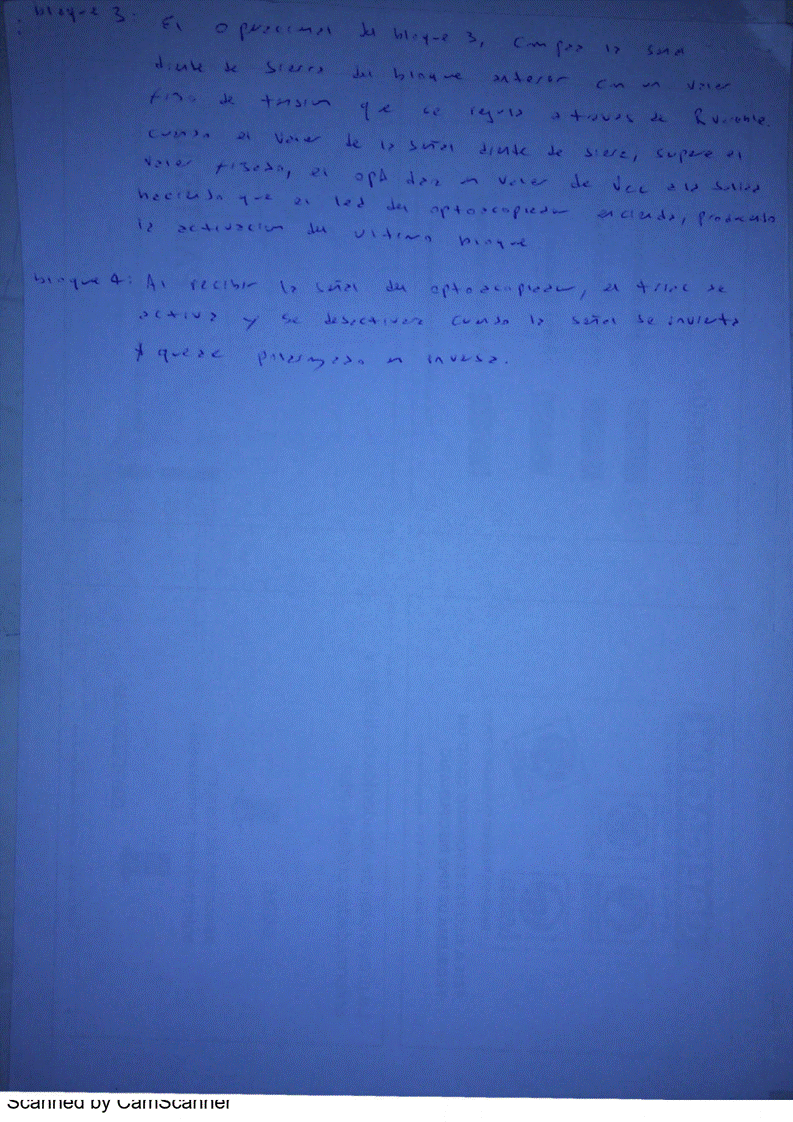 bloque 3: El operacional del bloque 3, compara la señal
diente de sierra del bloque anterior con un valor
fijo de tension que se regula a traves de Rvariable.
cuando el valor de la señal diente de sierra, supere el
valor fijado, el opA dara un valor de Vcc a la salida
haciendo que el led del optoacoplador encienda, produciendo
la activacion del ultimo bloque
bloque 4: Al recibir la señal del optoacoplador, el triac se
activa y se desactivara cuando la señal se invierta
y quede polarizado en inversa.
Scanned by CamScanner